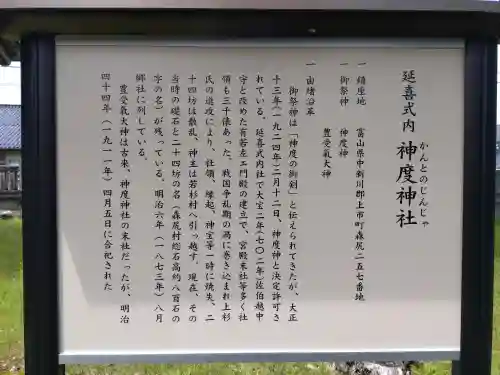 延喜式内 神度神社
かんとのじんじゃ
一 鎮座地 富山県中新川郡上市町森尻二五七番地
一 御祭神 神度神
豊受氣大神
一 由緒沿革
御祭神は「神度の御剣」と伝えられてきたが、大正
十三年(一九二四年)二月十二日、神度神と決定許可さ
れている。延喜式内社で大宝二年(七〇二年)佐伯越中
守と改めた有若左エ門殿の建立で、宮殿末社等多く社
領も三千俵あった。戦国争乱期の渦に巻き込まれ上杉
氏の進攻により、社領、縁起、神宝等一時に焼失、二
十四坊は散乱、神主は若杉村へ引っ越す。現在、その
当時の礎石と二十四坊の名(森尻村惣石高約八百石の
字の名)が残っている。明治六年(一八七三年)八月
郷社に列している。
豊受氣大神は古来、神度神社の末社だったが、明治
四十四年(一九一一年)四月五日に合祀された